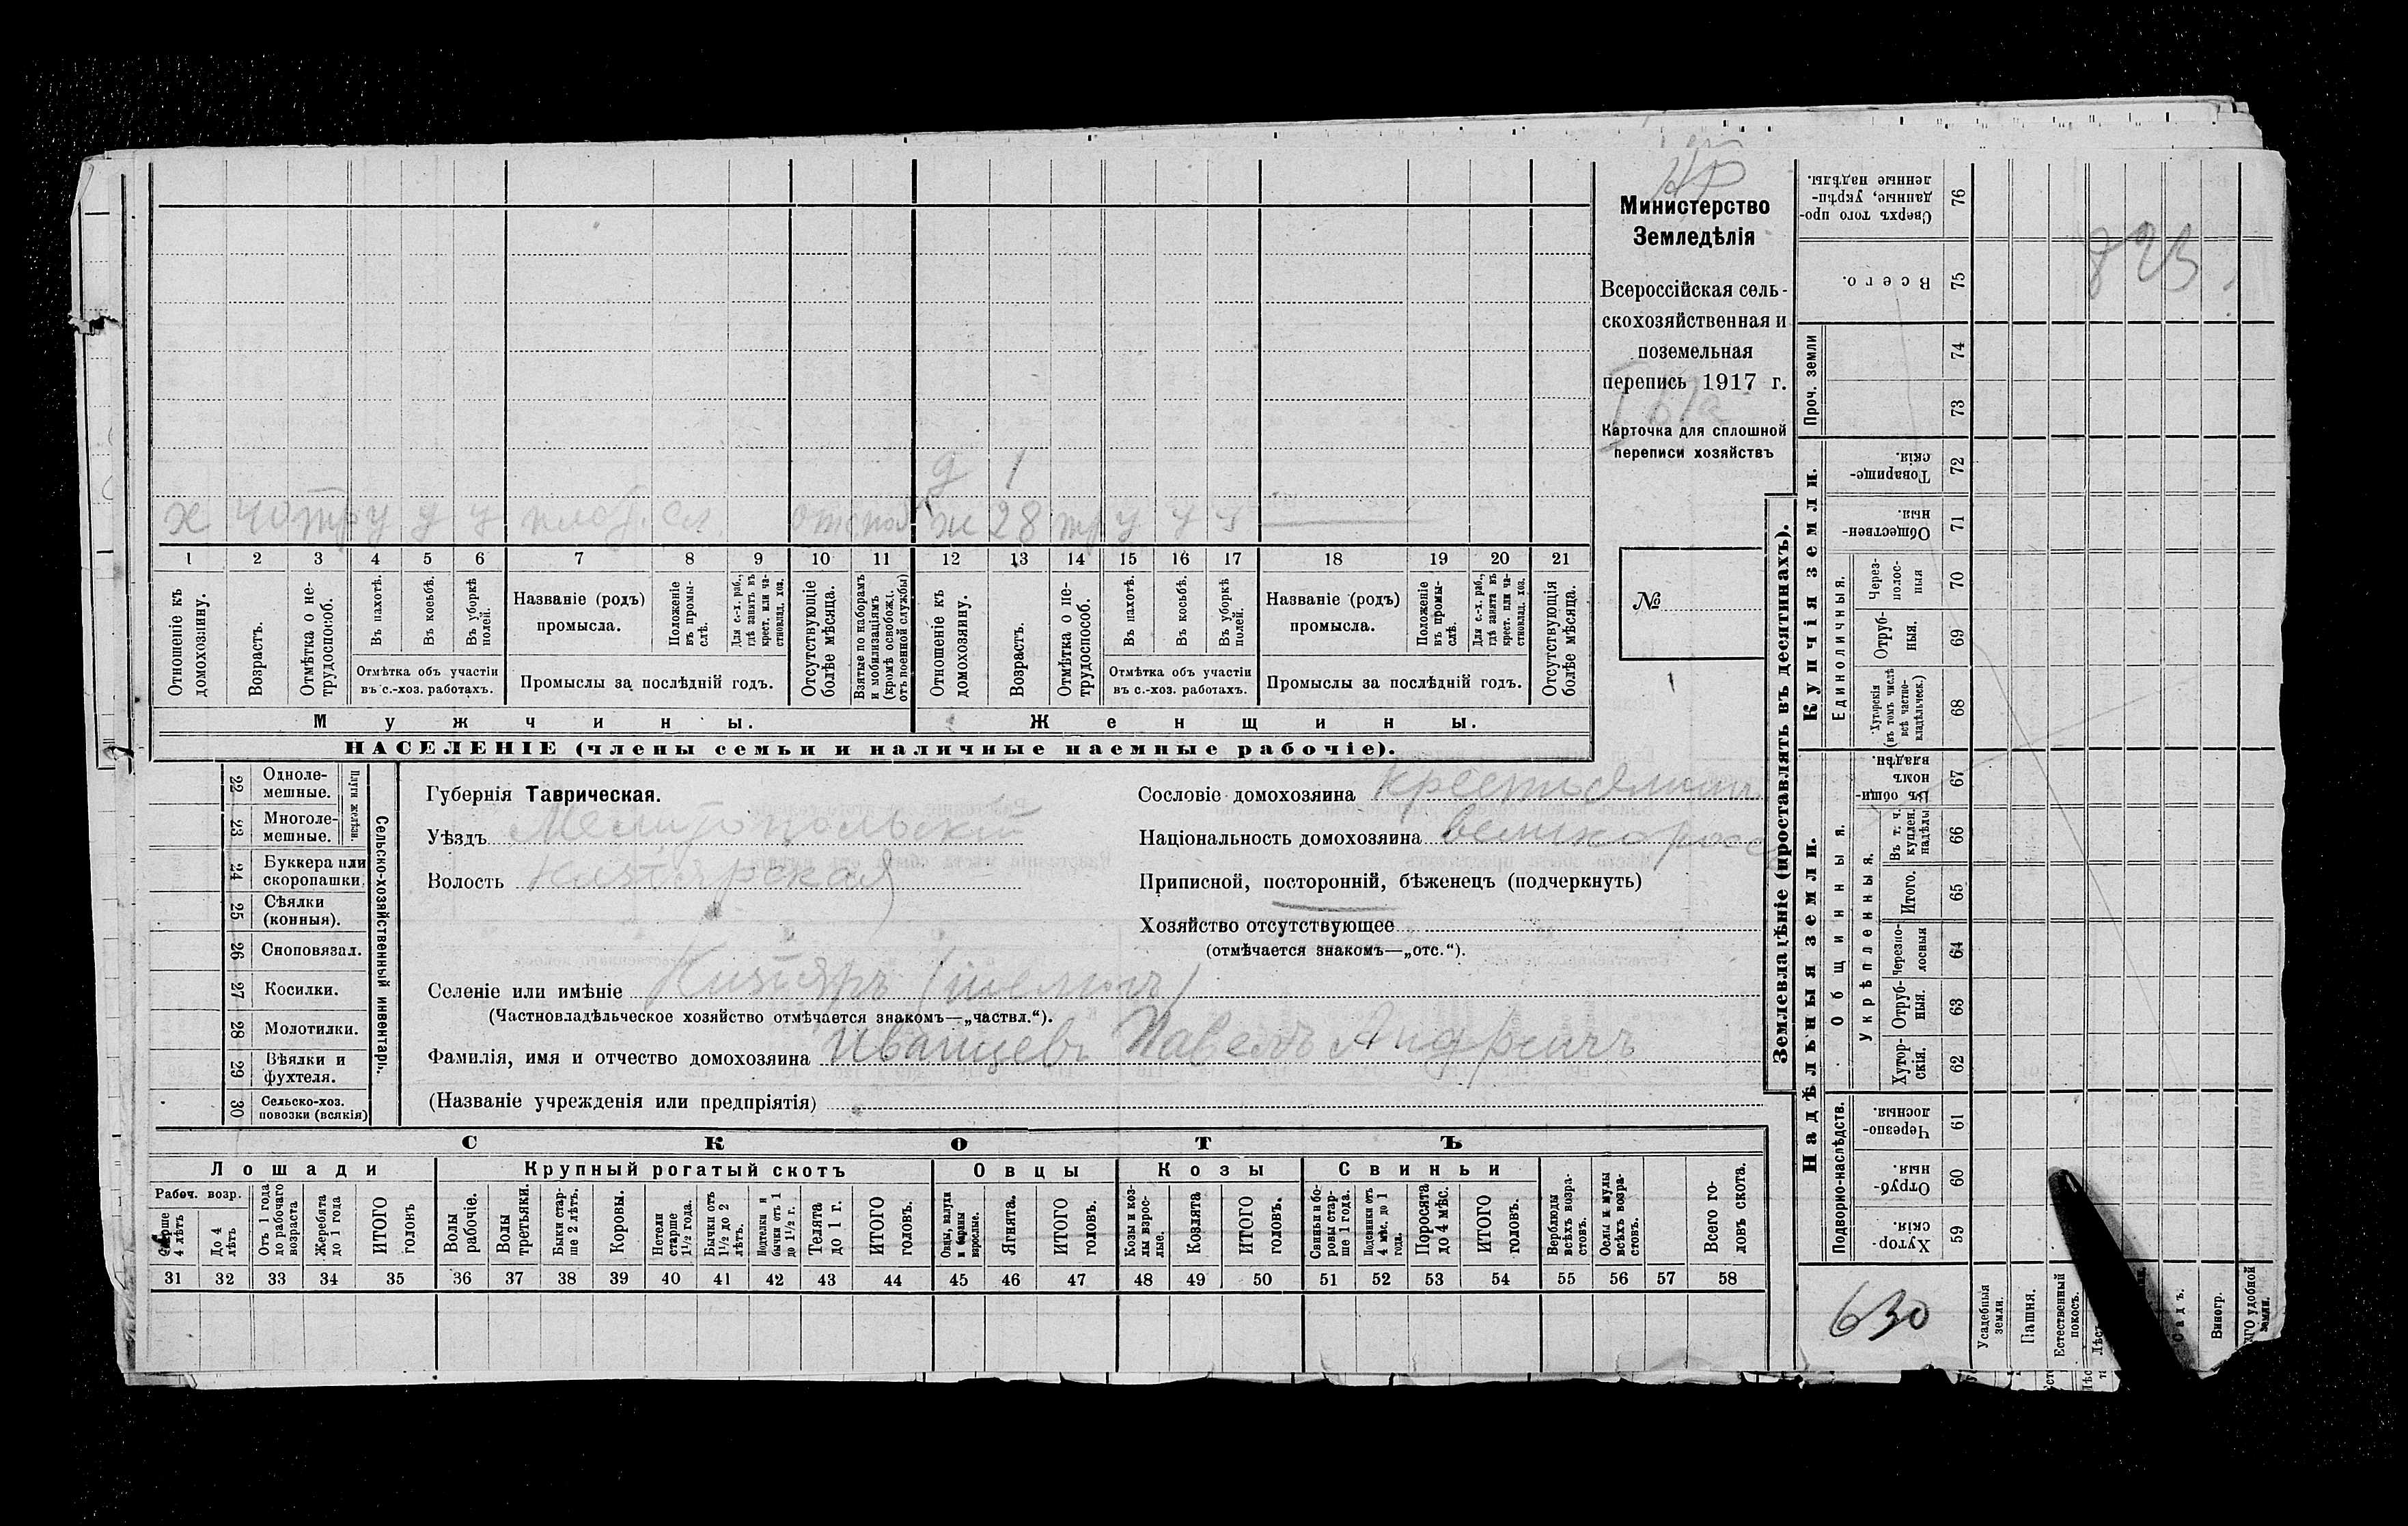 Министерство
Земледѣлія
Всероссійская сель-
скохозяйственная и
поземельная
перепись 1917 г.
Карточка для сплошной
переписи хозяйствъ
№
д 1
х 40 тр у у у ж 28 тр у у у
1 2 3 4 5 6 7 8 9 10 11 12 13 14 15 16 17 18 19 20 21
Отношеніе къ домохозяину.
Возрастъ.
Отмѣтка о не-трудоспособ.
Въ пахотѣ.
Въ косьбѣ.
Въ уборкѣ полей.
Отмѣтка объ участіи
въ с.-хоз. работахъ.
Названіе (родъ)
промысла.
Положеніе въ промы-слѣ.
Для с.-х. раб., гдѣ занятъ въ крест. или ча-стновлад. хоз.
Промыслы за послѣдній годъ.
Отсутствующіе болѣе мѣсяца.
Взятые по наборамъ и мобилизаціямъ (кромѣ освобожд. отъ военной службы)
Отношеніе къ домохозяину.
Возрастъ.
Отмѣтка о не-трудоспособ.
Въ пахотѣ.
Въ косьбѣ.
Въ уборкѣ полей.
Отмѣтка объ участіи
въ с.-хоз. работахъ.
Названіе (родъ)
промысла.
Положеніе въ промы-слѣ.
Для с.-х. раб., гдѣ занята въ крест. или ча-стновлад. хоз.
Промыслы за послѣдній годъ.
Отсутствующія болѣе мѣсяца.
Мужчины. Женщины.
НАСЕЛЕНІЕ (члены семьи и наличные наемные рабочіе).
Сельско-хозяйственный инвентарь.
Плуги желѣзн.
22 Одноле-мешные.
23 Многоле-мешные.
24 Буккера или скоропашки.
25 Сѣялки (конныя).
26 Сноповязал.
27 Косилки.
28 Молотилки.
29 Вѣялки и фухтеля.
30 Сельско-хоз. повозки (всякія)
Губернія Таврическая.
Уѣздъ Мелитопольскій
Волость Кизіярская
Селеніе или имѣніе Кизіяръ
(Частновладѣльческое хозяйство отмѣчается знакомъ—„частвл.“).
Фамилія, имя и отчество домохозяина Иванцевъ Павелъ Андреичъ
(Названіе учрежденія или предпріятія)
Сословіе домохозяина крестьянинъ
Національность домохозяина великороссъ
Приписной, посторонній, бѣженецъ (подчеркнуть)
Хозяйство отсутствующее
(отмѣчается знакомъ—„отс.“).
СКОТЪ
Лошади Крупный рогатый скотъ Овцы Козы Свиньи
Рабоч. возр.
Старше 4 лѣтъ
До 4 лѣтъ
Отъ 1 года до рабочаго возраста
Жеребята до 1 года
ИТОГО головъ
Волы рабочіе.
Волы третьяки.
Быки стар-ше 2 лѣтъ.
Коровы.
Нетели старше 1½ года.
Бычки отъ 1½ до 2 лѣтъ.
Подтелки и бычки отъ 1 до 1½ г.
Телята до 1 г.
ИТОГО головъ.
Овцы, валухи и бараны взрослые.
Ягнята.
ИТОГО головъ.
Козы и коз-лы взрос-лые.
Козлята
ИТОГО головъ.
Свиньи и бо-ровы стар-ше 1 года.
Подсвинки отъ 4 мѣс. до 1 года.
Поросята до 4 мѣс.
ИТОГО головъ.
Верблюды всѣхъ возра-стовъ.
Ослы и мулы всѣхъ возра-стовъ.
Всего го-ловъ скота.
31 32 33 34 35 36 37 38 39 40 41 42 43 44 45 46 47 48 49 50 51 52 53 54 55 56 57 58
Землевладѣніе (проставлять въ десятинахъ).
Надѣльныя земли.
Купчія земли.
Проч. земли
Сверхъ того про-данные, укрѣп-ленные надѣлы. 76
Всего. 75
74
73
Товарище-скія. 72
Обществен-ныя. 71
Единоличныя.
Через-полос-ныя 70
Отруб-ныя. 69
Хуторскія (въ томъ числѣ всѣ частно-владѣльческ.) 68
Общинныя.
Въ общи-номъ владѣн. 67
Укрѣпленныя.
Въ т. ч. куплен. надѣлы 66
Итого. 65
Черезпо-лосныя 64
Отруб-ныя. 63
Хутор-скія. 62
Подворно-наслѣдств.
Черезпо-лосныя. 61
Отруб-ныя. 60
Хутор-скія. 59
Усадебныя земли.
Пашня.
Естественный покосъ.
Виногр.
823
630